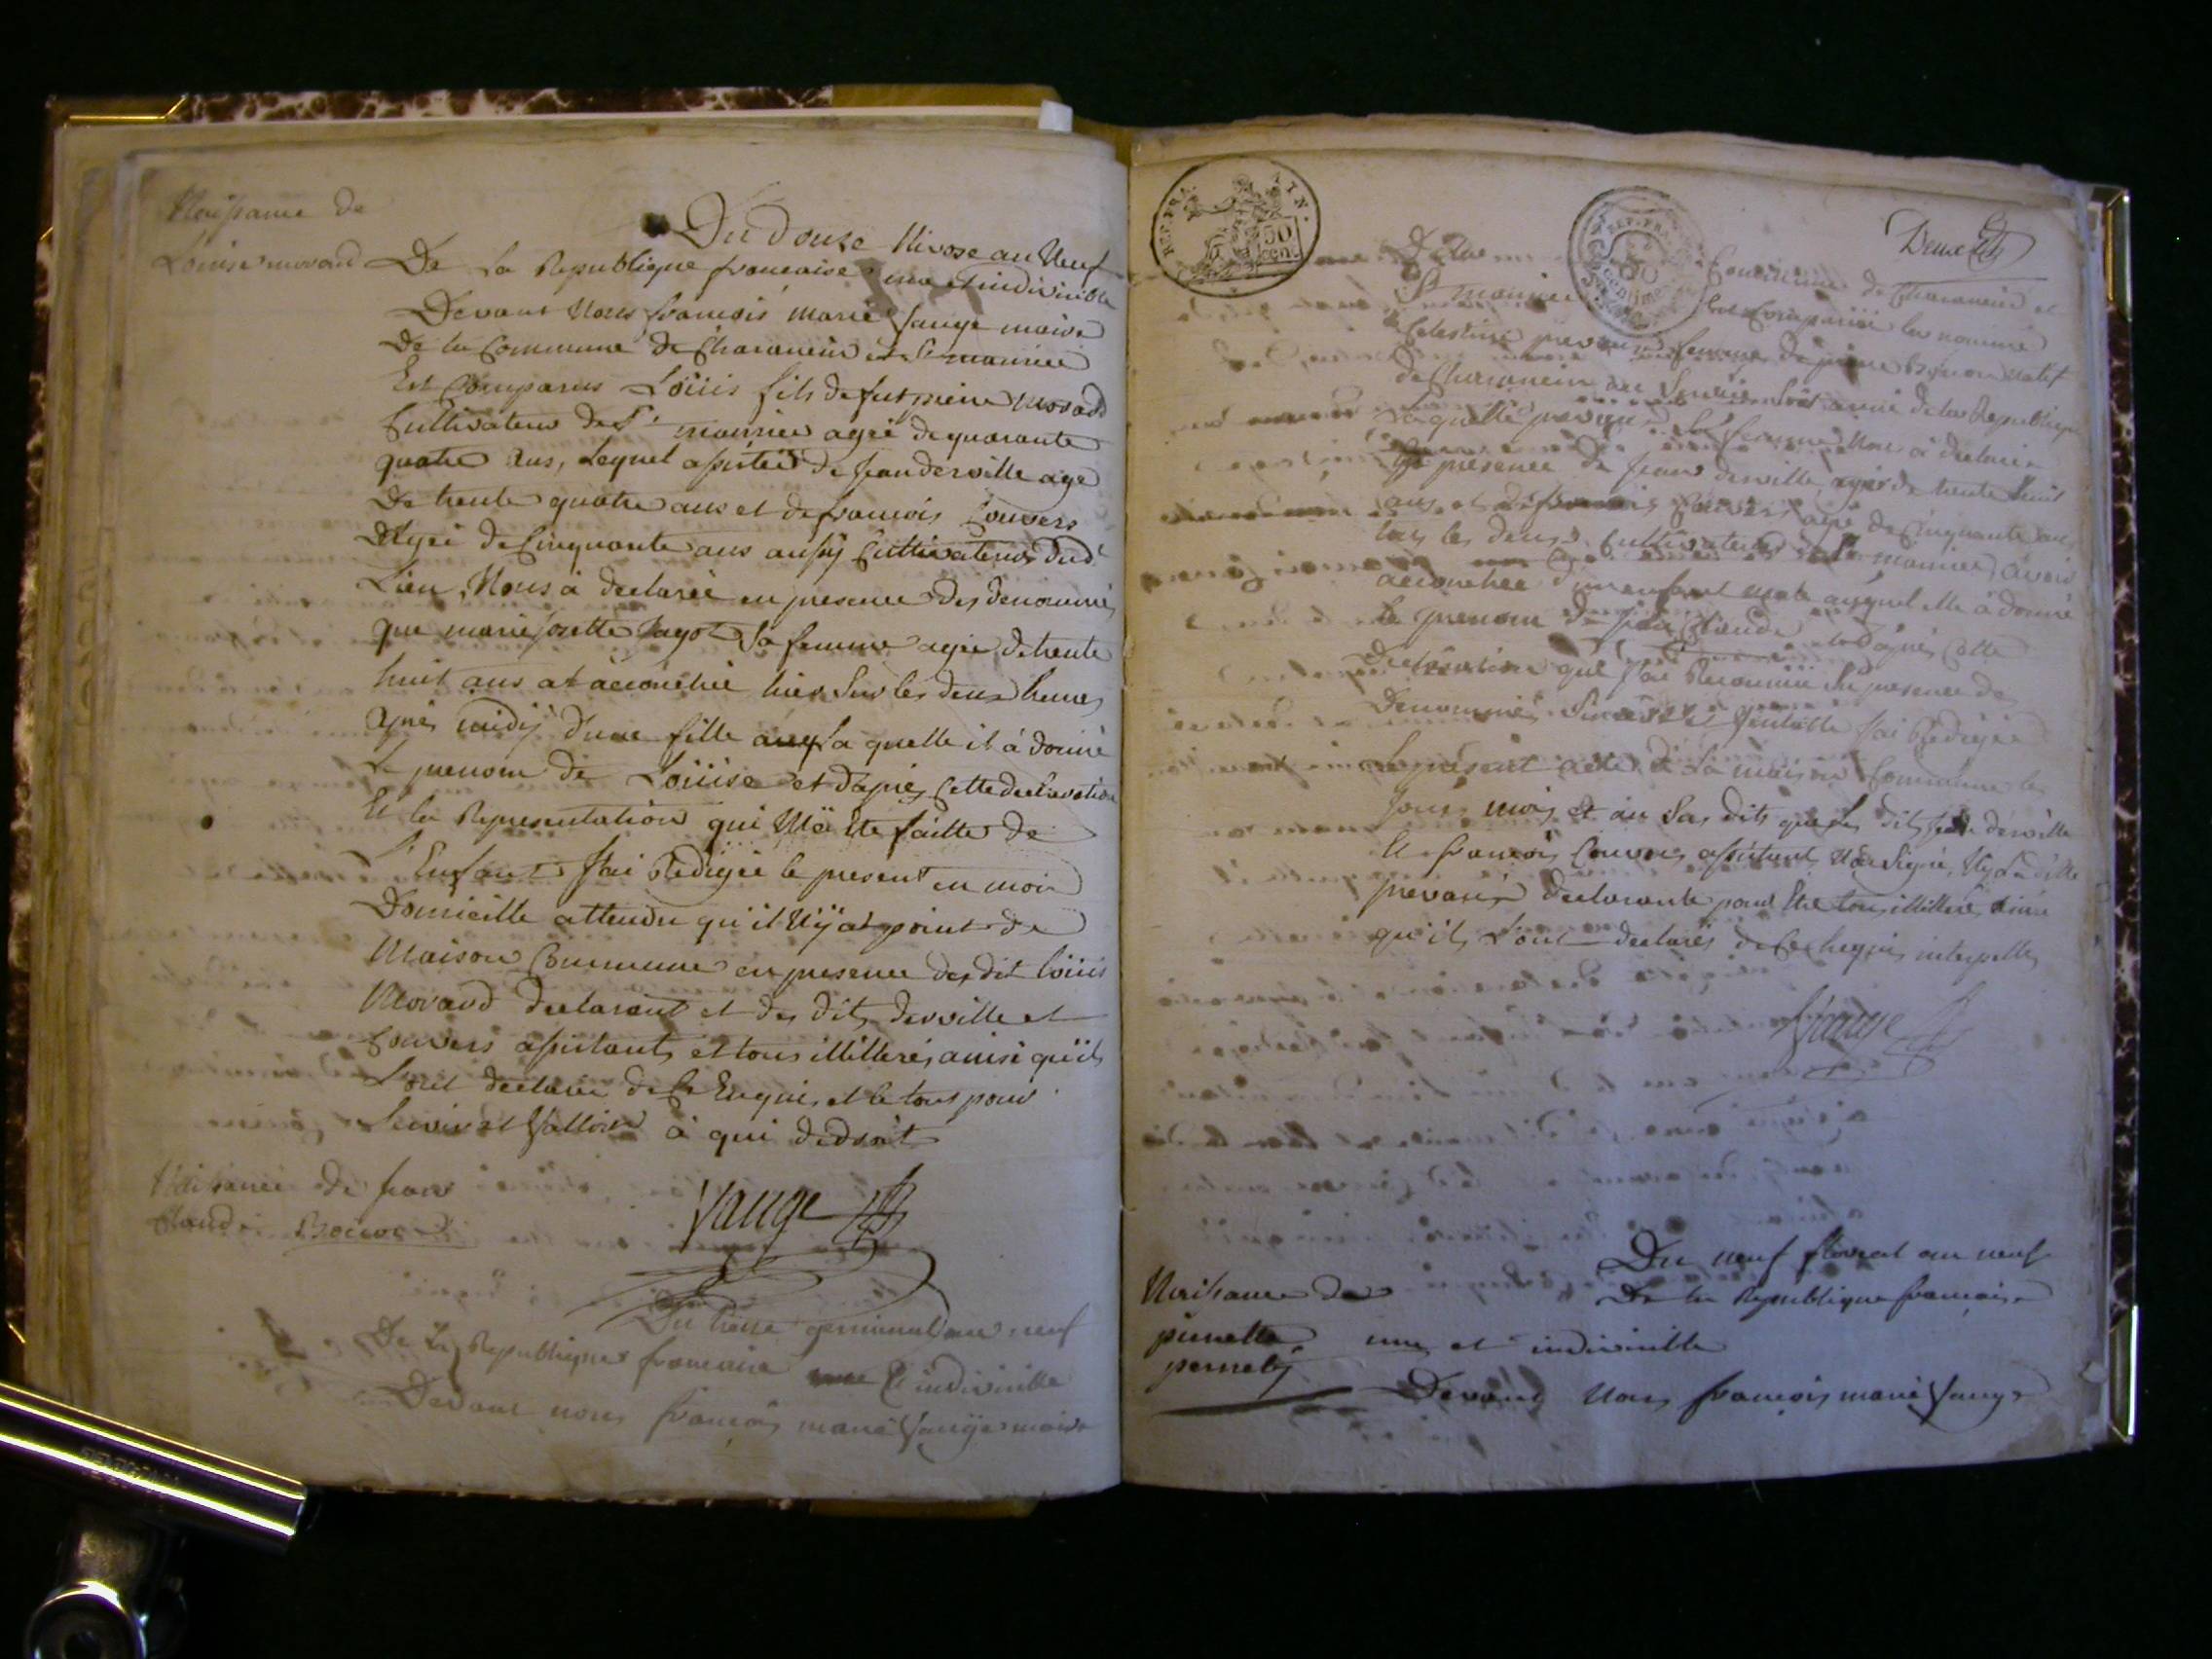 Naissance de
Louise morand
Du Douze Nivose an Neuf
De La Republique francaise une et indivisible
Devant Nous francois marie Vauge maire
De la Commune de Charancin et St maurice
Est Comparus Loüis fils de fut pierre Morand
Cultivateur de St maurice agé de quarante
quatre ans, Lequel assistée de jean derville agé
De trente quatre ans et de francois Convers
Agé de Cinquante ans aussy Cultivateurs dud
Lieu, Nous à declarée en presence des denommés
que marie josette Sa femme agée de trente
huit ans at accouchée hier Sur les deux heures
apres midÿ d'une fille a la quelle il à donné
Le prenom de Loüise et dapres Cette declaration
Et la Representation qui Ma Ete faitte de
L'Enfant J'ai Redigée le present en mon
Domicille attendu qu'il N'ÿ at point de
Maison Commune en presence des dit Loüis
Morand declarant et des dits derville et
Convers assistants et tous illitterés ainsi qu'ils
L'ont declarée de Ce Enquis et le tout pour
Servir et Valloir à qui de droit
Vauge
Naissance de jean
Claude
Du treise germinal an neuf
De La Republique francaise une Et indivisible
Devant nous francois marie Vauge maire
REP. FRA.
50
cent.
REP. FRA.
50
centimes
Deux
De la Commune de Charancin et
St maurice Est Comparüe la nommé
Celestine femme de pierre natif
de Charancin au Service de la Republique
Laquelle femme Nous à declaré
En presence de jean derville agé de trente huit
ans et de francois Convers agé de Cinquante ans
tous les deux Cultivateurs de St maurice, avoir
accouchée d'un enfant male auquel elle à donné
Le prenom de jean Claude et dapres Cette
declaration que j'ai Reconnüe En presence des
Denommés Sincere et J'ai Redigée
Le present acte à la maison Commune les
Jour mois et an Sus dits que les dits jean derville
Et francois Convers assistants N'on Signé, Ny La ditte
declarante pour Etre tous illitterés ainsi
qu'ils L'ont declarés de Ce Enquis interpellés
Vauge
Naissance de
pierrette
pernety
Du neuf floreal an neuf
De la Republique francaise
une et indivisible
Devant Nous francois marie Vauge